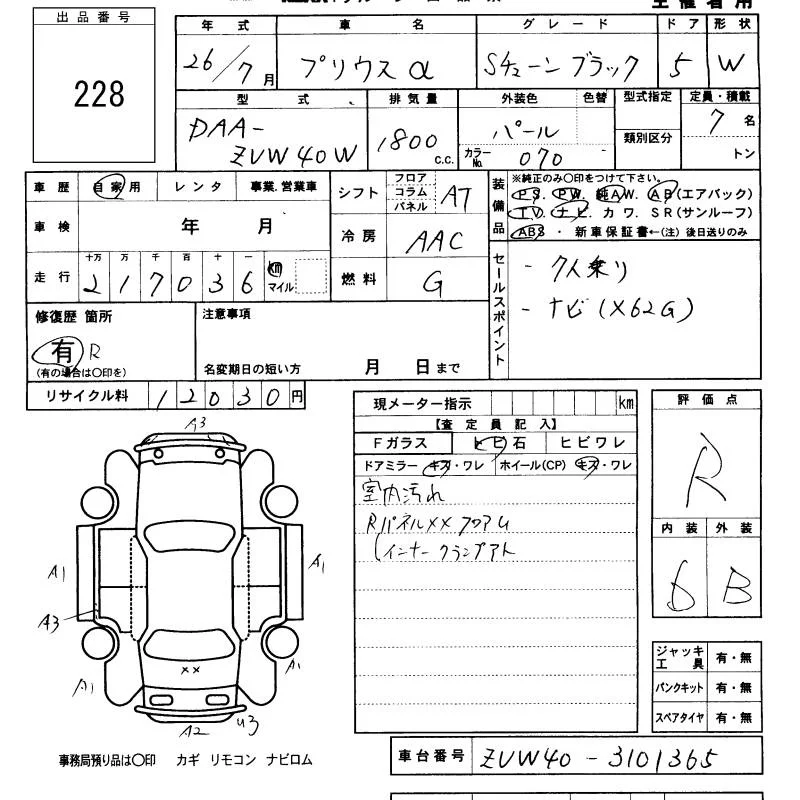 出品番号
228
主催者用
年式 車名 グレード ドア 形状
26/7月 プリウスα Sチューンブラック 5 W
型式 排気量 外装色 色替 型式指定 定員・積載
DAA-
ZVW40W
1800 c.c.
パール
カラーNo. 070
類別区分
7名
トン
車歴 自家用 レンタ 事業.営業車
車検 年 月
走行 十万 万 千 百 十 一
217036 km マイル
シフト フロア コラム パネル AT
冷房 AAC
燃料 G
装備品
※純正のみ○印をつけて下さい。
PS. PW. 純AW. AB(エアバック)
TV. ナビ. カワ. SR(サンルーフ)
ABS ・ 新車保証書←(注) 後日送りのみ
セールスポイント
- 7人乗り
- ナビ(X62G)
修復歴 箇所
有 R
(有の場合は○印を)
注意事項
名変期日の短い方 月 日まで
リサイクル料 12030円
現メーター指示 km
【査定員記入】
Fガラス トビ石 ヒビワレ
ドアミラー キズ・ワレ ホイール(CP) キズ・ワレ
室内汚れ
RパネルXX フロアム
インナー クランプアト
評価点
R
内装 外装
D B
ジャッキ工具 有・無
パンクキット 有・無
スペアタイヤ 有・無
A3
A1
A1
A3
A1
A1
XX
A2
U3
事務局預り品は○印 カギ リモコン ナビロム
車台番号 ZVW40-3101365